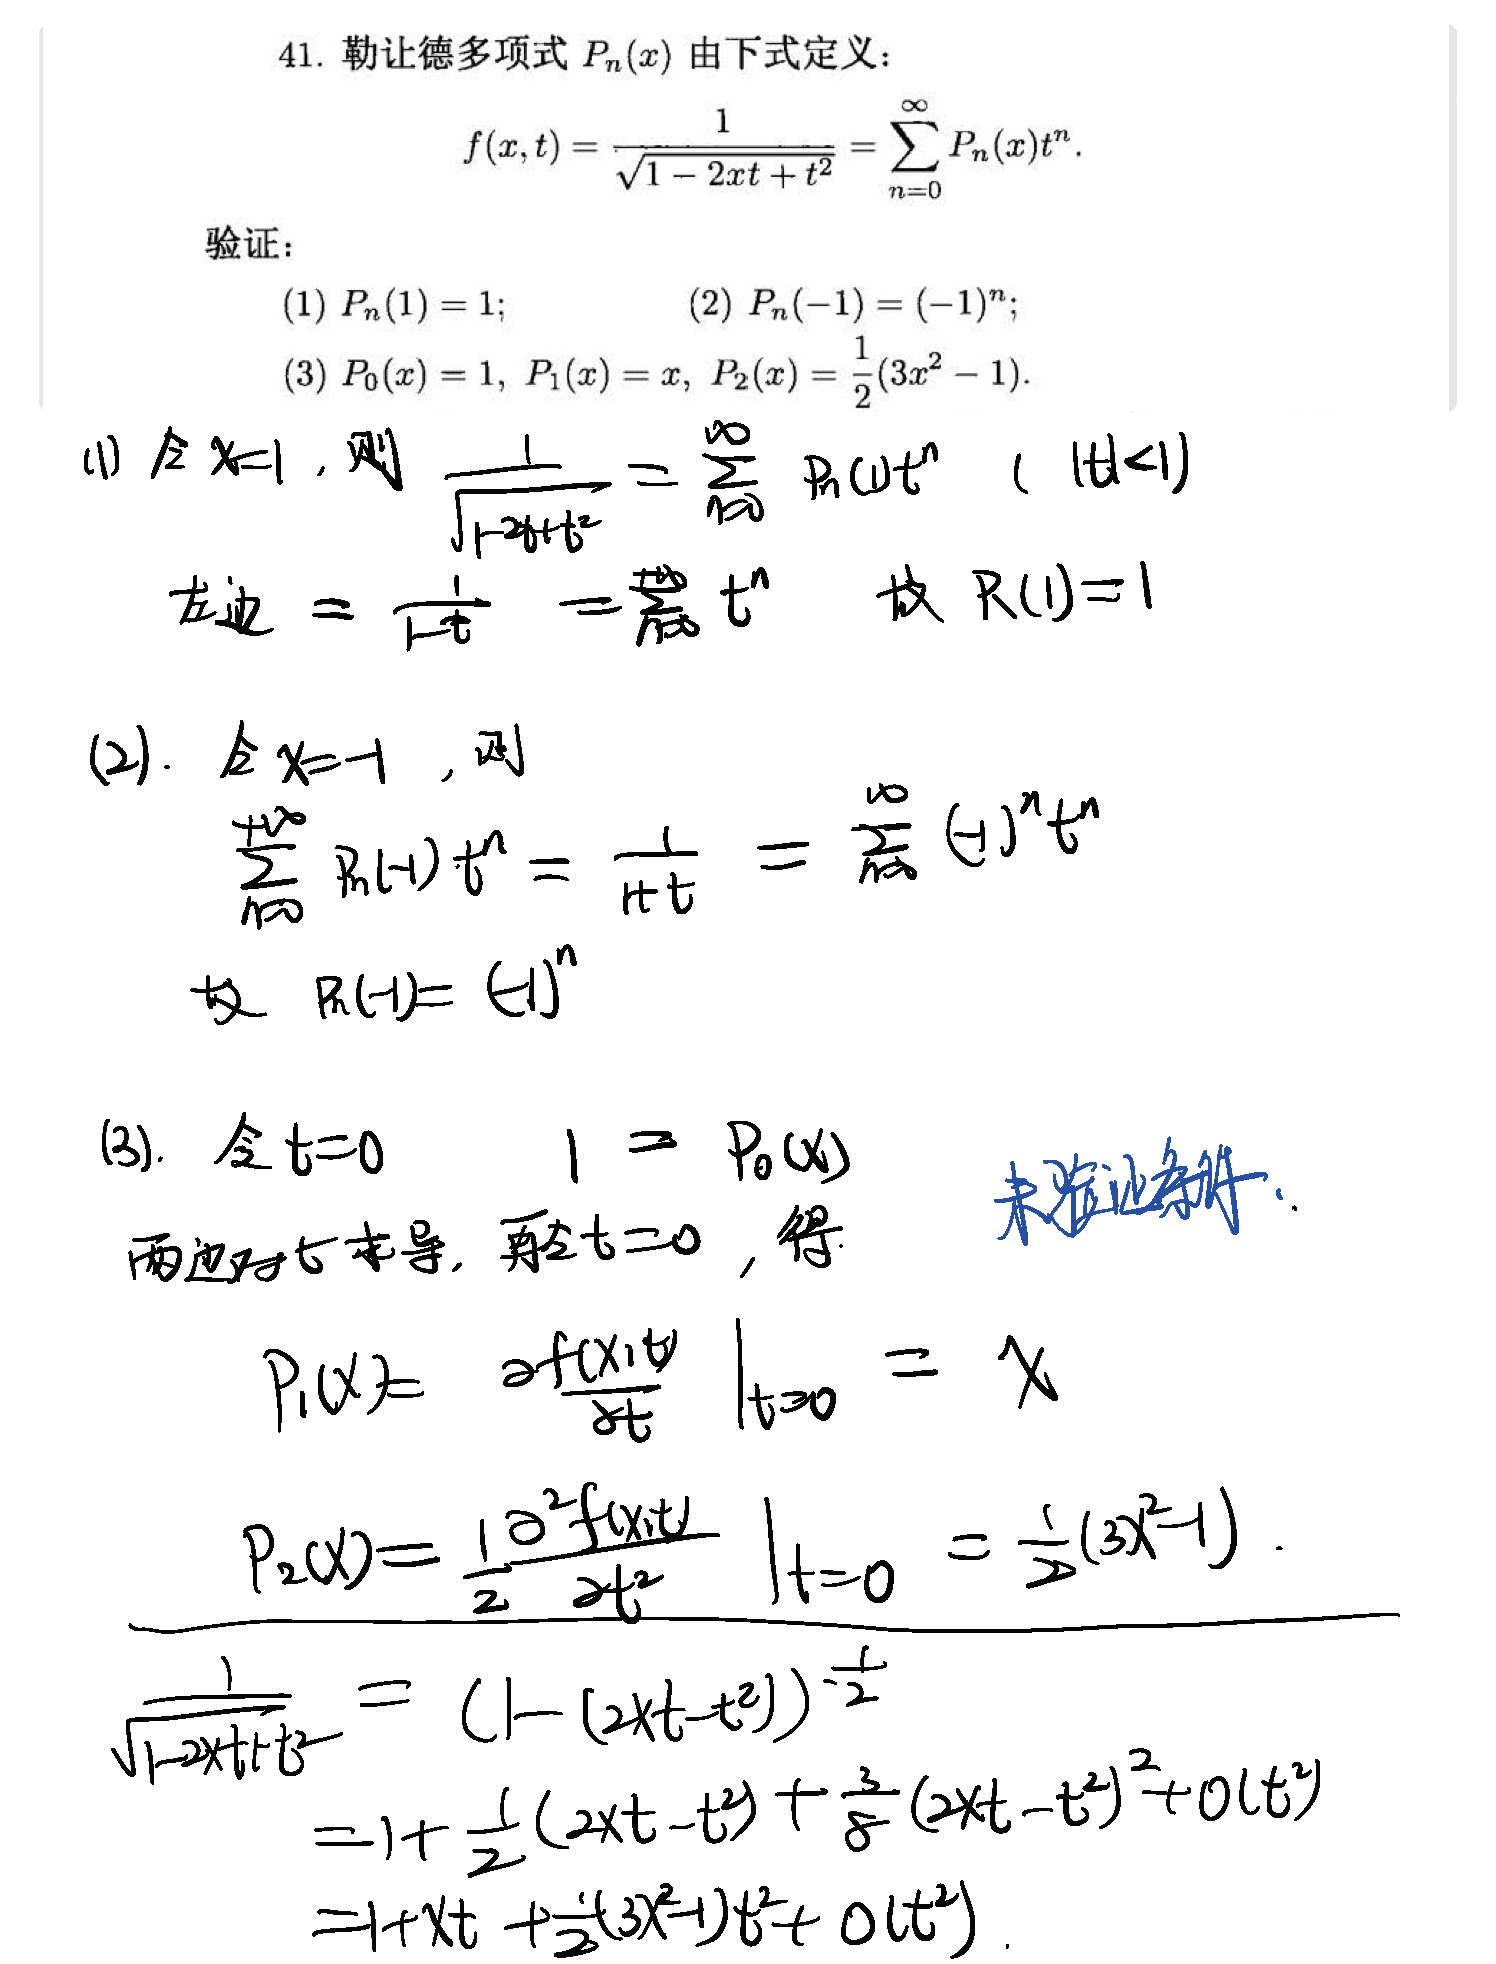 41. 勒让德多项式 P_n(x) 由下式定义:
f(x, t) = \frac{1}{\sqrt{1 - 2xt + t^2}} = \sum_{n=0}^{\infty} P_n(x)t^n.
验证:
(1) P_n(1) = 1; (2) P_n(-1) = (-1)^n;
(3) P_0(x) = 1, P_1(x) = x, P_2(x) = \frac{1}{2}(3x^2 - 1).
(1) 令 x=1, 则 \frac{1}{\sqrt{1-2t+t^2}} = \sum_{n=0}^{\infty} P_n(1)t^n ( |t|<1)
左边 = \frac{1}{1-t} = \sum_{n=0}^{+\infty} t^n 故 P_n(1)=1
(2). 令 x=-1, 则
\sum_{n=0}^{+\infty} P_n(-1) t^n = \frac{1}{1+t} = \sum_{n=0}^{\infty} (-1)^n t^n
故 P_n(-1)= (-1)^n
(3). 令 t=0 1 = P_0(x)
未验证条件.
两边对 t 求导, 再令 t=0, 得.
P_1(x)= \frac{∂f(x,t)}{∂t} |_{t=0} = x
P_2(x)= \frac{1}{2} \frac{∂^2f(x,t)}{∂t^2} |_{t=0} = \frac{1}{2}(3x^2-1).
\frac{1}{\sqrt{1-2xt+t^2}} = (1-(2xt-t^2))^{-\frac{1}{2}}
=1+\frac{1}{2}(2xt-t^2)+\frac{3}{8}(2xt-t^2)^2+o(t^2)
=1+xt+\frac{1}{2}(3x^2-1)t^2+o(t^2).